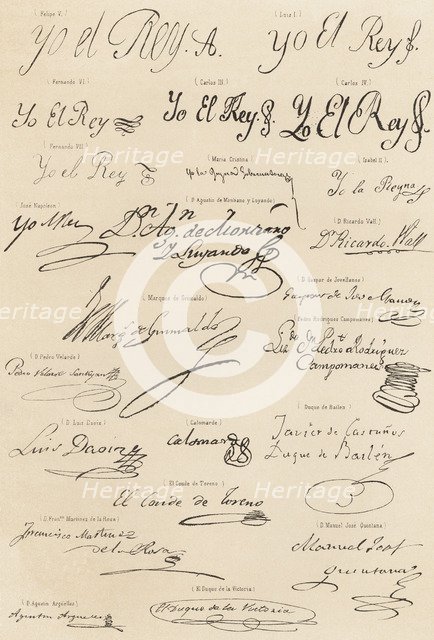 ( Felipe V. ) ( Luis I. )
Yo el Rey. Yo El Rey
( Fernando VI. ) ( Carlos III. ) ( Carlos IV. )
Yo El Rey Yo El Rey Yo El Rey
( Fernando VII. ) ( Maria Cristina ) ( Isabel II. )
Yo el Rey Yo la Reyna Gobernadora Yo la Reyna
( José Napoleon. ) ( D. Agustin de Montiano y Luyando ) ( D. Ricardo Wall. )
Yo el Rey Dn. Agn. de Montiano Dn Ricardo Wall
y Luyando
( Marques de Grimaldo ) ( D. Gaspar de Jovellanos )
El Marqs de Grimaldo Gaspar de Jove Llanos
( D. Pedro Rodriguez Campomanes )
Pedro Rodriguez
Campomanes
( D. Pedro Velarde )
Pedro Velarde Santiyan
( D. Luis Daoiz ) ( Calomarde ) ( Duque de Bailen )
Luis Daoiz Calomarde Javier de Castaños
Duque de Bailén
( El Conde de Toreno )
El Conde de Toreno
( D. Franco. Martinez de la Rosa ) ( D. Manuel José Quintana )
Francisco Martinez Manuel Josef
de la Rosa Quintana
( D. Agustin Argüelles ) ( El Duque de la Victoria )
Agustin Arguelles El Duque de la Victoria
Heritage
Heritage
Heritage
Heritage
Heritage
Heritage
Heritage
Heritage